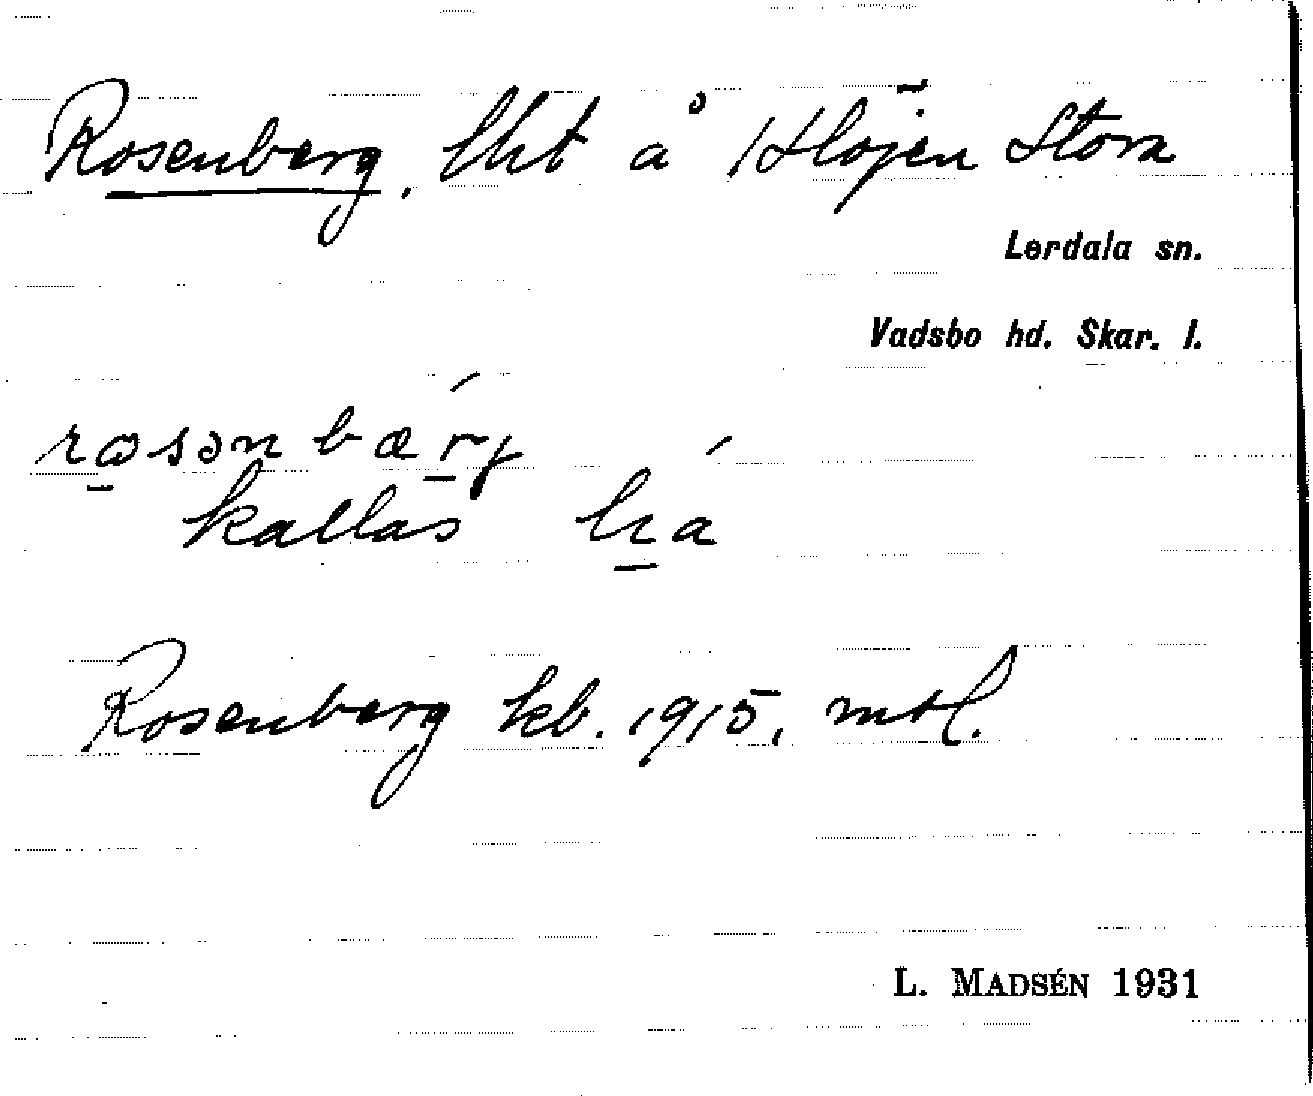 Rosenberg, lht å Höjen Stora
Lerdala sn.
Vadsbo hd. Skar. l.
rosənbærj
kallas
Rosenberg kb. 1915, mtl.
L. MADSÉN 1931